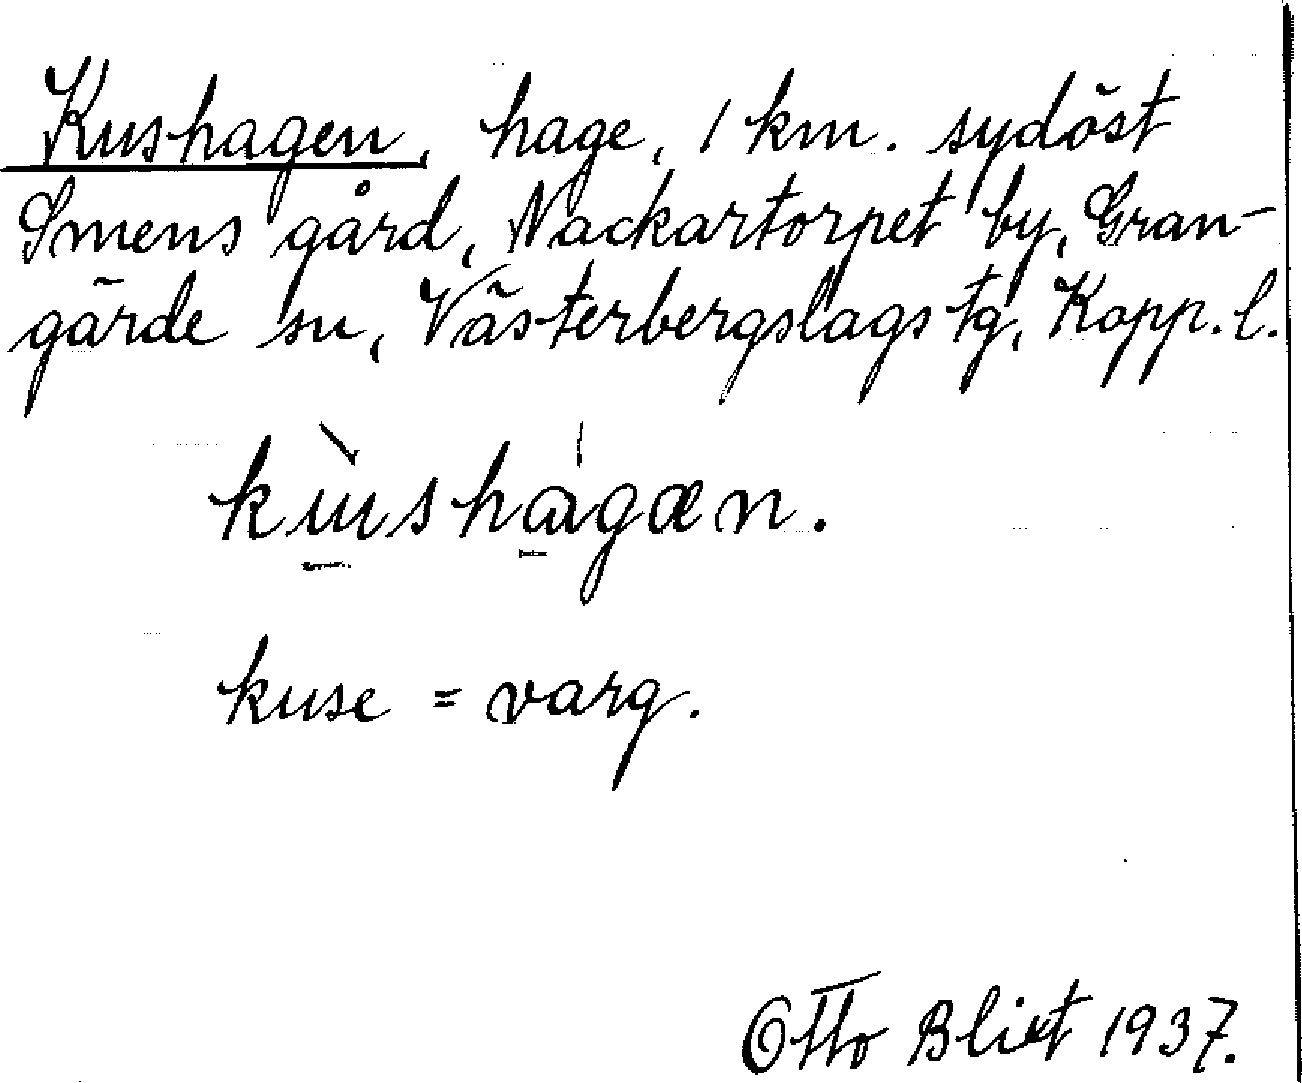 Kushagen, hage, 1 km. sydöst
Smens gård, Nackartorpet by, Gran-
gärde sn, Västerbergslags tg, Kopp. l.
kùshágæn.
kuse = varg.
Otto Blixt 1937.